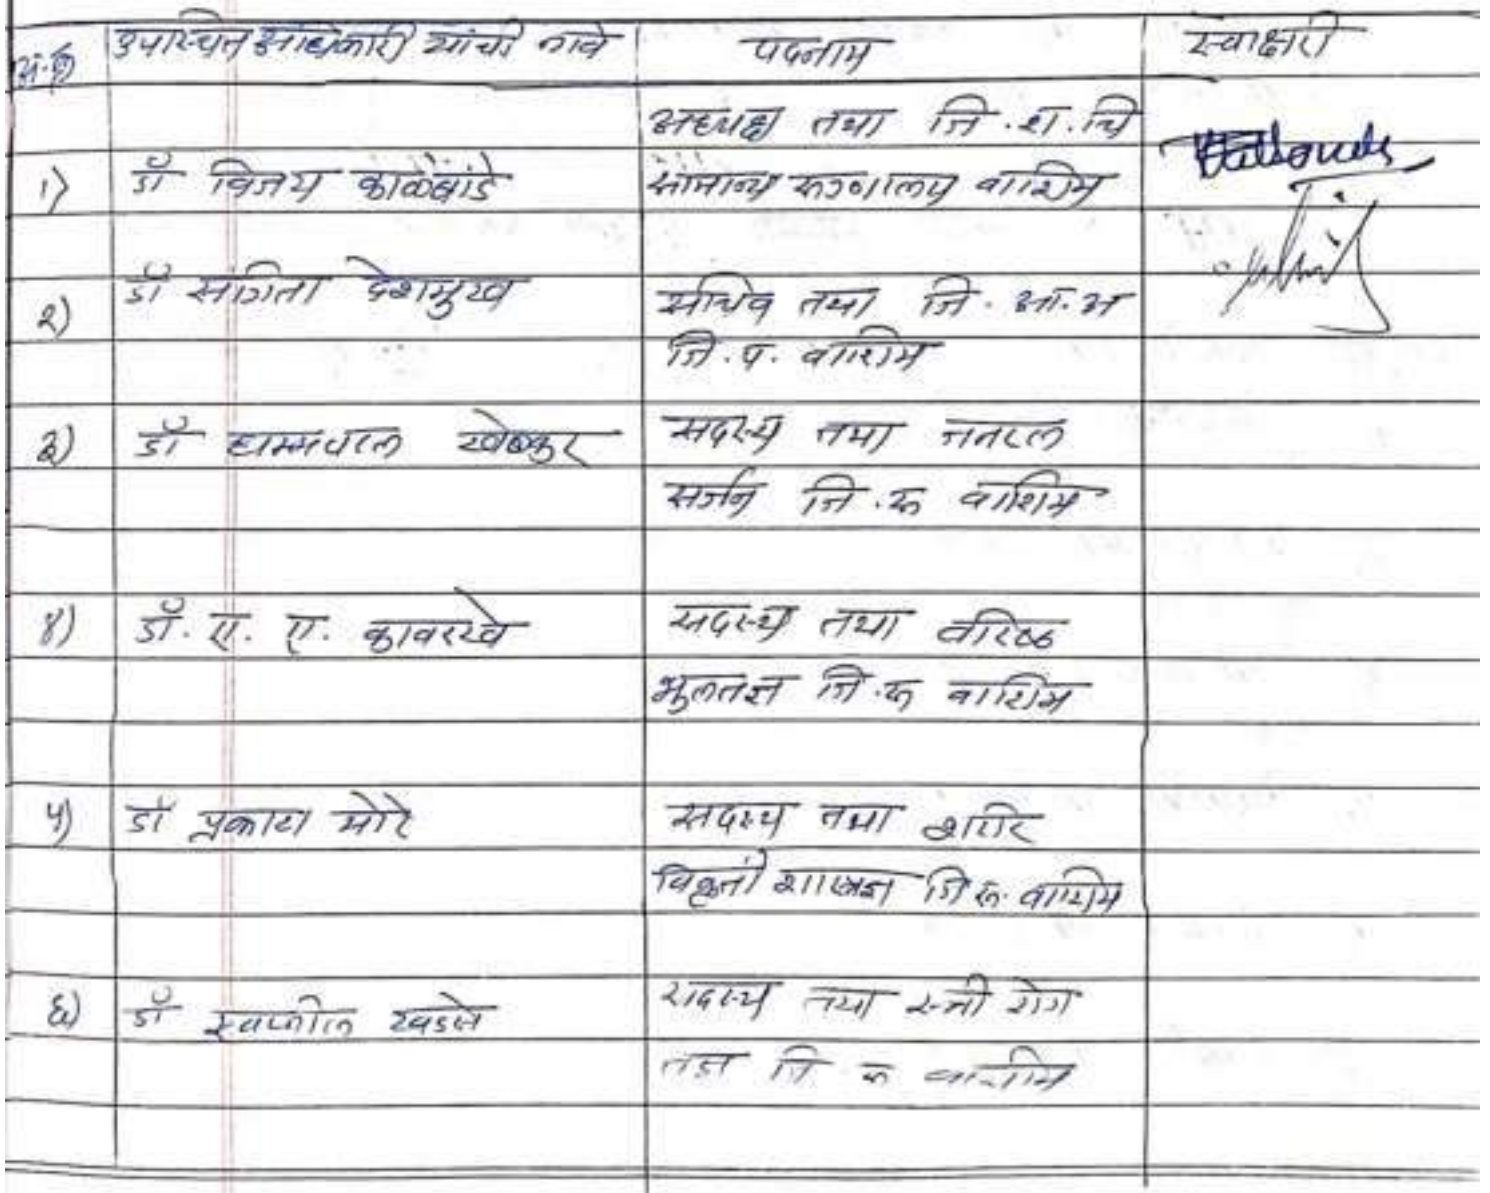 अ.क्र उपस्थित अधिकारी यांची नावे पदनाम स्वाक्षरी
अध्यक्ष तथा जि.श.चि
१) डॉ विजय काळबांडे सामान्य रुग्णालय वाशिम
२) डॉ संगिता देशमुख सचिव तथा जि. आ. अ
जि.प. वाशिम
३) डॉ धम्मपाल खेळकर सदस्य तथा जनरल
सर्जन जि.रु वाशिम
४) डॉ. ए. ए. कावरखे सदस्य तथा वरिष्ठ
भुलतज्ञ जि.रु वाशिम
५) डॉ प्रकाश मोरे सदस्य तथा शरिर
विकृती शास्त्रज्ञ जि रु. वाशिम
६) डॉ स्वप्नील खडसे सदस्य तथा स्त्री रोग
तज्ञ जि रु वाशीम